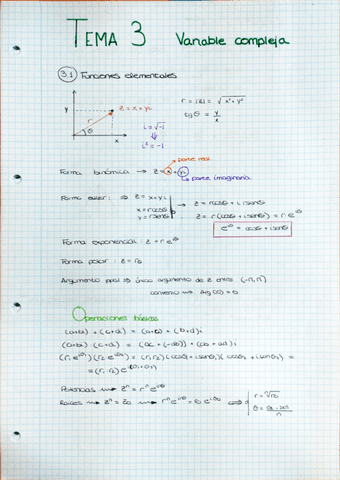 TEMA 3 Variable compleja
3.1 Funciones elementales
y z = x + yi r = |z| = √x² + y²
r tg θ = y/x
θ i = √-1
x i² = -1
parte real
Forma binómica → z = x + yi
parte imaginaria
Forma euler: ⇒ z = x + yi → z = r cosθ + i r senθ
x = r cosθ
y = r senθ z = r (cosθ + i senθ) = r e^iθ
e^iθ = cosθ + i senθ
Forma exponencial: z = r e^iθ
Forma polar: z = r_θ
Argumento ppal ⇒ único argumento de z entre (-π, π)
convenio → Arg(0) = 0
Operaciones básicas
(a+bi) + (c+di) = (a+c) + (b+d)i
(a+bi) (c+di) = (ac + (-bd)) + (bc + ad)i
(r₁ e^iθ₁)(r₂ e^iθ₂) = (r₁ r₂)(cosθ₁ + i senθ₁)(cosθ₂ + i senθ₂) =
= (r₁ r₂) e^i(θ₁+θ₂)
Potencias → zⁿ = rⁿ e^inθ
Raíces → zⁿ = z₀ → rⁿ e^inθ = r₀ e^iθ₀ ⇔ r = ⁿ√r₀